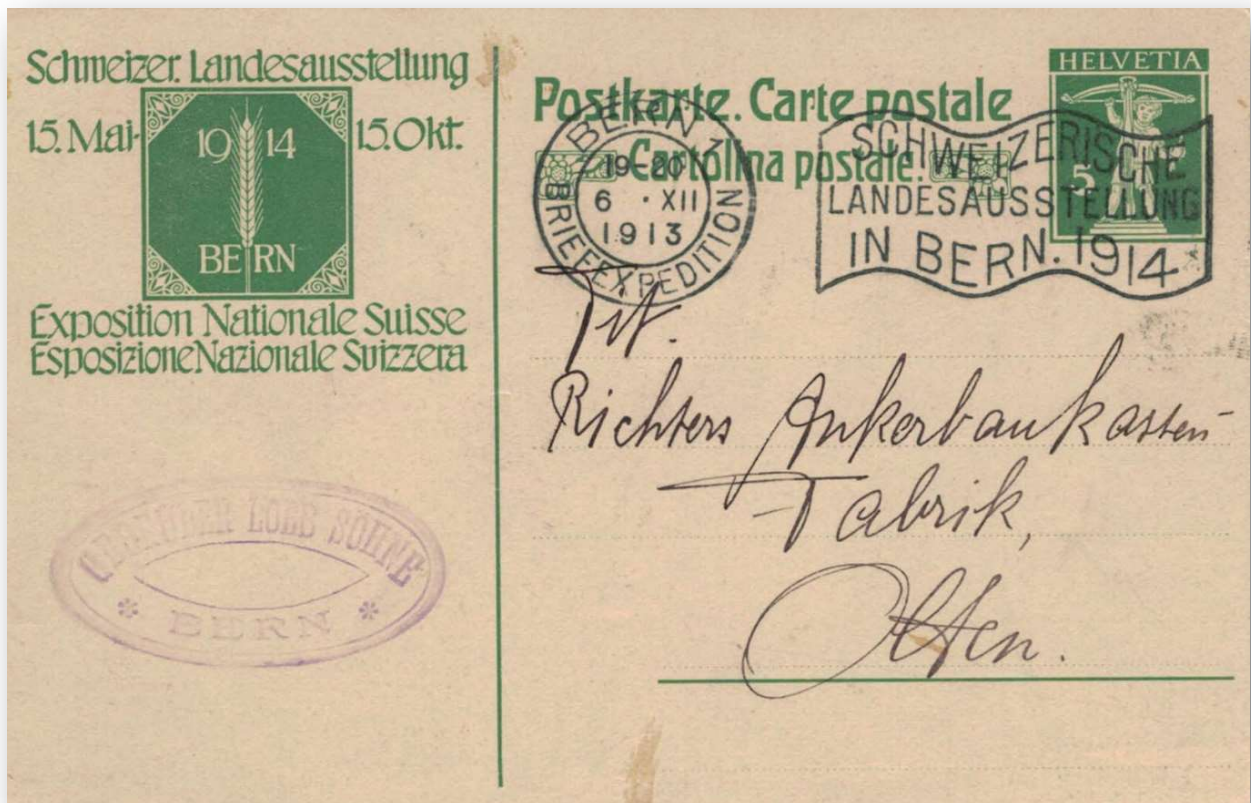 Schweizer. Landesausstellung
15. Mai-15. Okt.
19 14
BERN
Exposition Nationale Suisse
Esposizione Nazionale Svizzera
GEBRÜDER LOEB SÖHNE
* BERN *
Postkarte. Carte postale
Cartolina postale.
HELVETIA
5
BERN 1
19-20
6 · XII
1913
BRIEFEXPEDITION
SCHWEIZERISCHE
LANDESAUSSTELLUNG
IN BERN. 1914
Tit.
Richters Ankerbaukasten-
Fabrik,
Olten.